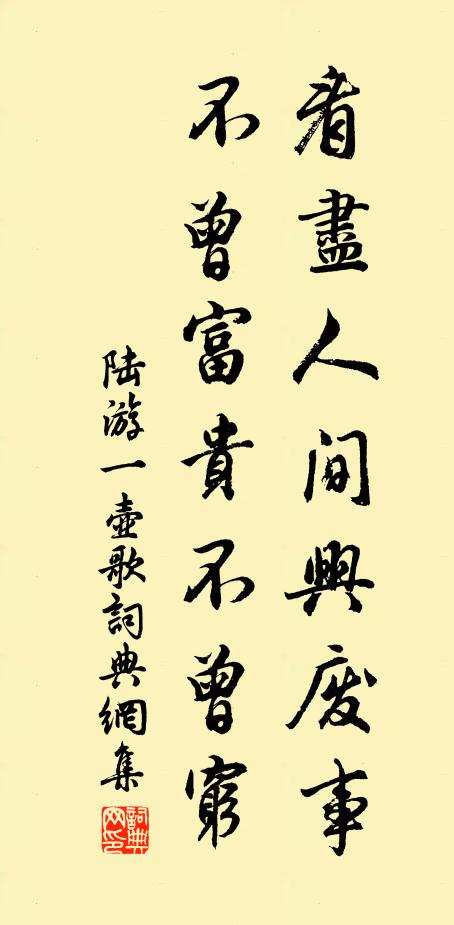 看盡人間興廢事
不曾富貴不曾窮
陸游一壺歌詞典網集
詞典網印